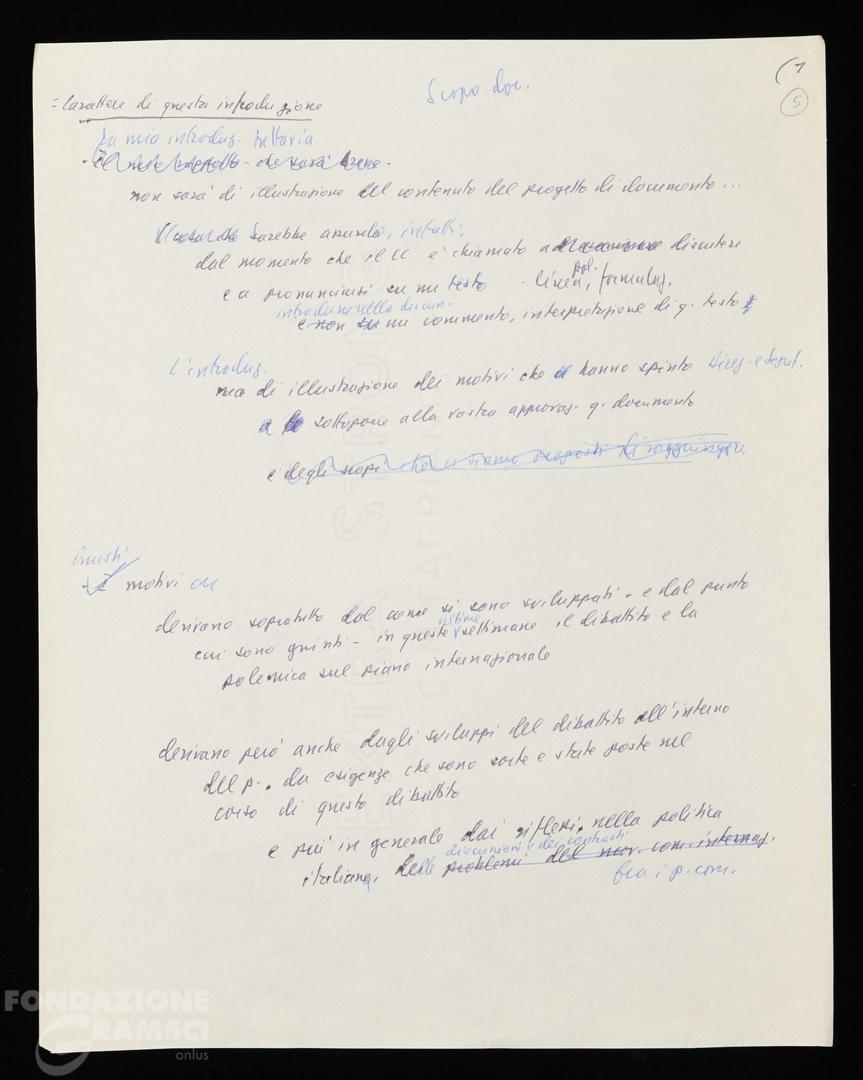 (1
5
Scopo doc.
= Carattere di questa introduzione
La mia introduz. tuttavia
che sarà breve -
non sarà di illustrazione del contenuto del progetto di documento...
Sarebbe assurdo, infatti,
dal momento che il CC è chiamato a discutere
e a pronunciarsi su un testo - linea pol., formulaz.
introdurre nella discuss.
e non su un commento, interpretazione di q. testo
L'introduz.
ma di illustrazione dei motivi che hanno spinto direz. e segret.
a sottoporre alla vostra approvaz. q. documento
e degli scopi che ci siamo proposti di raggiungere
Questi
- I motivi che
derivano sopratutto dal come si sono sviluppati - e dal punto
cui sono giunti - in queste ultime settimane il dibattito e la
polemica sul piano internazionale
derivano però anche dagli sviluppi del dibattito all'interno
del p. da esigenze che sono sorte e state poste nel
corso di questo dibattito
e più in generale dai riflessi, nella politica
italiana, delle discussioni e dei contrasti problemi del mov. com. internaz.
fra i p. com.
PABRIA
FONDAZIONE
GRAMSCI
onlus